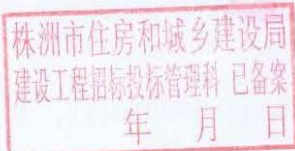 株洲市住房和城乡建设局
建设工程招标投标管理科 已备案
年 月 日